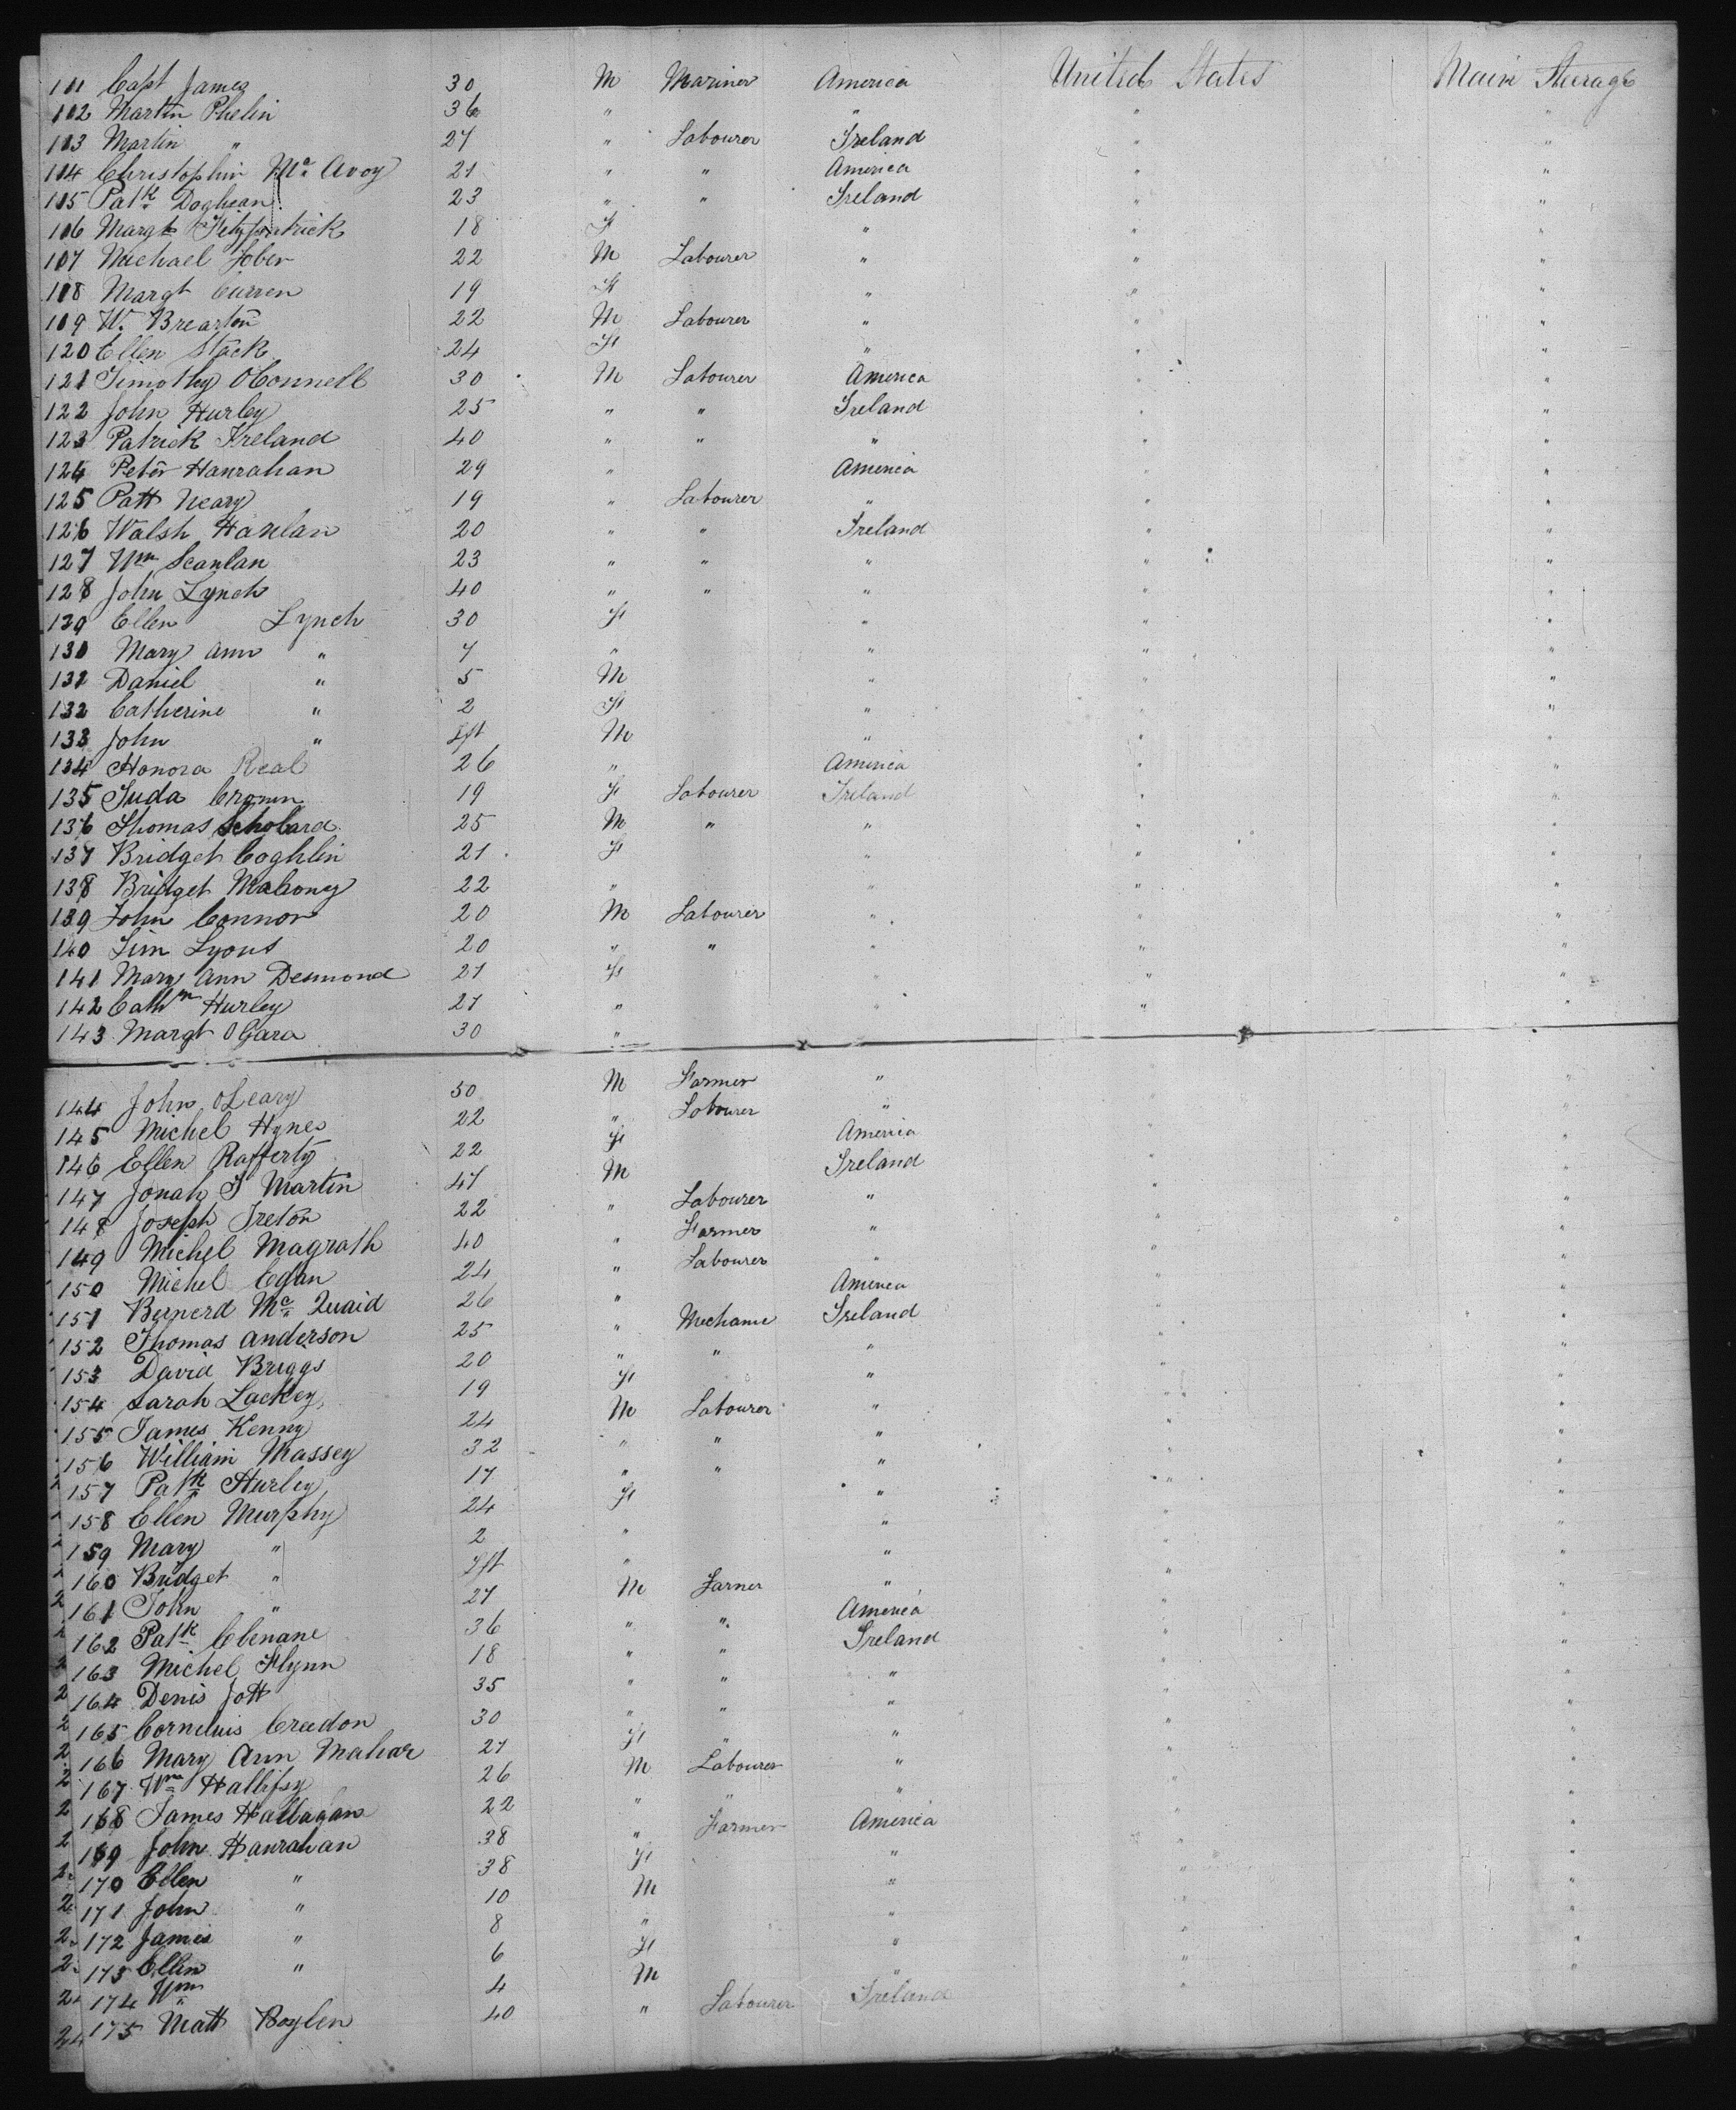 111 Capt James 30 M Mariner America United States Main Steerage
112 Martin Phelin 36 " " "
113 Martin " 27 " Labourer Ireland " "
114 Christopher Mc Avoy 21 " " America " "
115 Patk Doghean 23 " " Ireland " "
116 Margt Fitzpatrick 18 F " " "
117 Michael Tober 22 M Labourer " " "
118 Margt Curren 19 F " " "
119 W. Brearton 22 M Labourer " " "
120 Ellen Stack 24 F " " "
121 Timothy OConnell 30 M Labourer America " "
122 John Hurley 25 " " Ireland " "
123 Patrick Ireland 40 " " " " "
124 Peter Hanrahan 29 " America " "
125 Patt Neary 19 " Labourer " " "
126 Walsh Hanlan 20 " " Ireland " "
127 Wm Scanlan 23 " " " " "
128 John Lynch 40 " " " " "
129 Ellen Lynch 30 F " " "
130 Mary Ann " 7 " " " "
131 Daniel " 5 M " " "
132 Catherine " 2 F " " "
133 John " Ift M " " "
134 Honora Real 26 " America " "
135 Juda Cronin 19 F Labourer Ireland " "
136 Thomas Scholard 25 M " " " "
137 Bridget Coghlin 21 F " " "
138 Bridget Mahony 22 " " " "
139 John Connor 20 M Labourer " " "
140 Tim Lyons 20 " " " " "
141 Mary Ann Desmond 21 F " " "
142 Cathn Hurley 21 " " " "
143 Margt OGara 30 "
144 John OLeary 50 M Farmer " " "
145 Michel Hynes 22 " Labourer " " "
146 Ellen Rafferty 22 F America " "
147 Jonah J Martin 47 M Ireland " "
148 Joseph Ireton 22 " Labourer " " "
149 Michel Magrath 40 " Farmer " " "
150 Michel Egan 24 " Labourer " " "
151 Bernerd Mc Quaid 26 " America " "
152 Thomas Anderson 25 " Mechanic Ireland " "
153 David Briggs 20 " " " " "
154 Sarah Lackey 19 F " " "
155 James Kenny 24 M Labourer " " "
156 William Massey 32 " " " " "
157 Patk Hurley 17 " " " " "
158 Ellen Murphy 24 F " " "
159 Mary " 2 " " " "
160 Bridget " Ift " " " "
161 John " 27 M Farmer " " "
162 Patk Clenane 36 " " America " "
163 Michel Flynn 18 " " Ireland " "
164 Denis Jott 35 " " " " "
165 Cornelius Creedon 30 " " " " "
166 Mary Ann Mahar 21 F " " " "
167 Wm Hallissy 26 M Labourer " " "
168 James Hallagan 22 " " " " "
169 John Hanrahan 38 " Farmer America " "
170 Ellen " 38 F " " "
171 John " 10 M " " "
172 James " 8 " " " "
173 Ellen " 6 F " " "
174 Wm 4 M " " "
175 Matt Boylen 40 " Labourer Ireland "